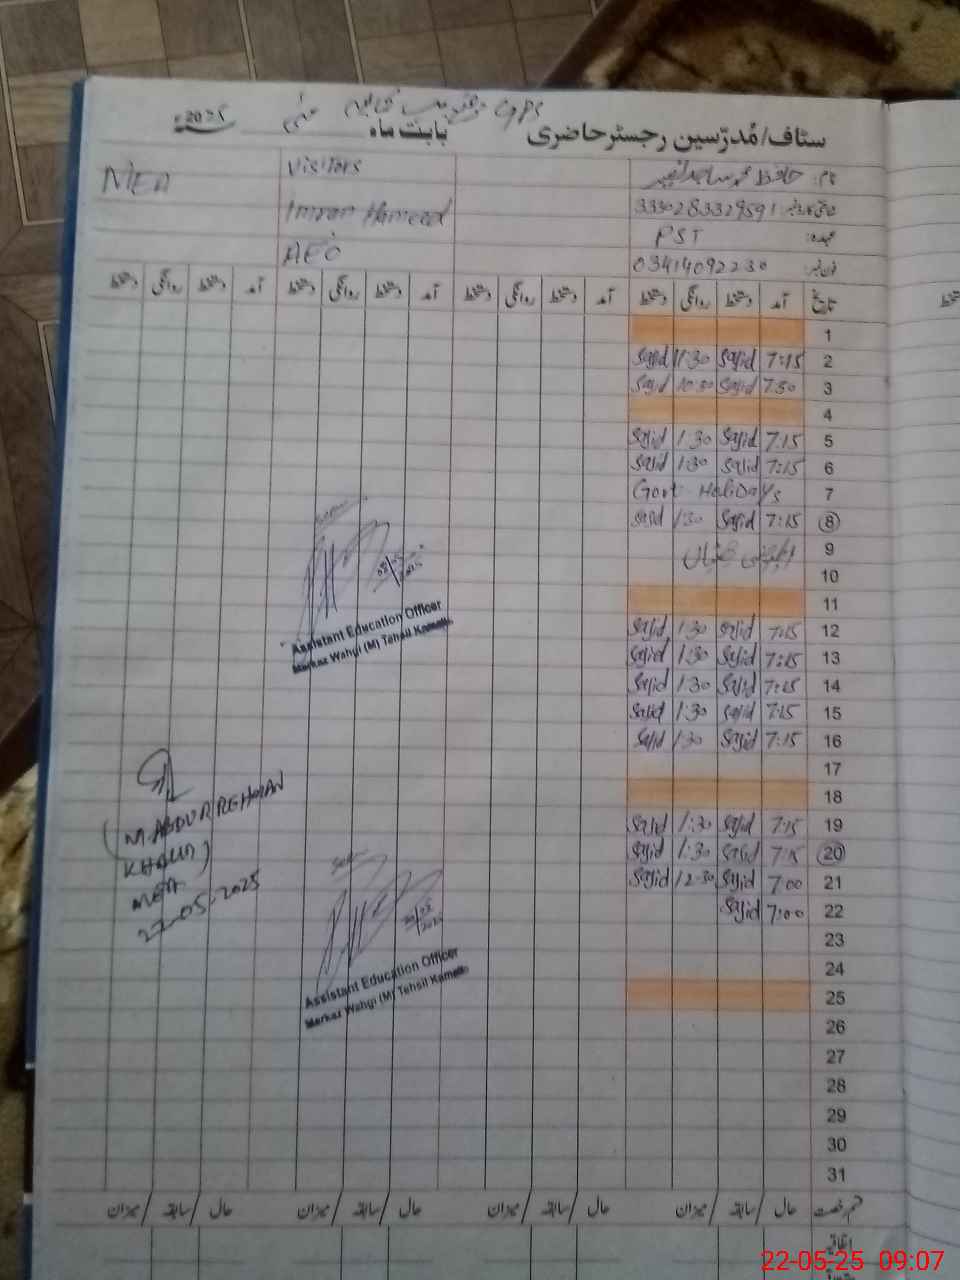 GPS
سٹاف/مُدرّسین رجسٹر حاضری بابت ماہ مئی 2025ء
نام: حافظ محمد ساجد
3330283329591
عہدہ: PST
فون نمبر: 03414092230
Visitors
Imran Hameed
AEO
MEA
تاریخ آمد دستخط روانگی دستخط آمد دستخط روانگی دستخط آمد دستخط روانگی دستخط آمد دستخط روانگی دستخط
1
2 7:15 Sajid 11:30 Sajid
3 7:30 Sajid 10:30 Sajid
4
5 7:15 Sajid 1:30 Sajid
6 7:15 Sajid 1:30 Sajid
7 Govt Holidays
8 7:15 Sajid 1:30 Sajid
9
10
11
12 7:15 Sajid 1:30 Sajid
13 7:15 Sajid 1:30 Sajid
14 7:15 Sajid 1:30 Sajid
15 7:15 Sajid 1:30 Sajid
16 7:15 Sajid 1:30 Sajid
17
18
19 7:15 Sajid 1:30 Sajid
20 7:15 Sajid 1:30 Sajid
21 7:00 Sajid 12:30 Sajid
22 7:00 Sajid
23
24
25
26
27
28
29
30
31
Assistant Education Officer
Markaz Wahgi (M) Tehsil
M. ABDUR REHMAN
KHALID)
MEA
22-05-2025
2025
Assistant Education Officer
Markaz Wahgi (M) Tehsil
قسم رخصت حال / سابقہ / میزان حال / سابقہ / میزان حال / سابقہ / میزان حال / سابقہ / میزان
اتفاقیہ
22-05-25 09:07